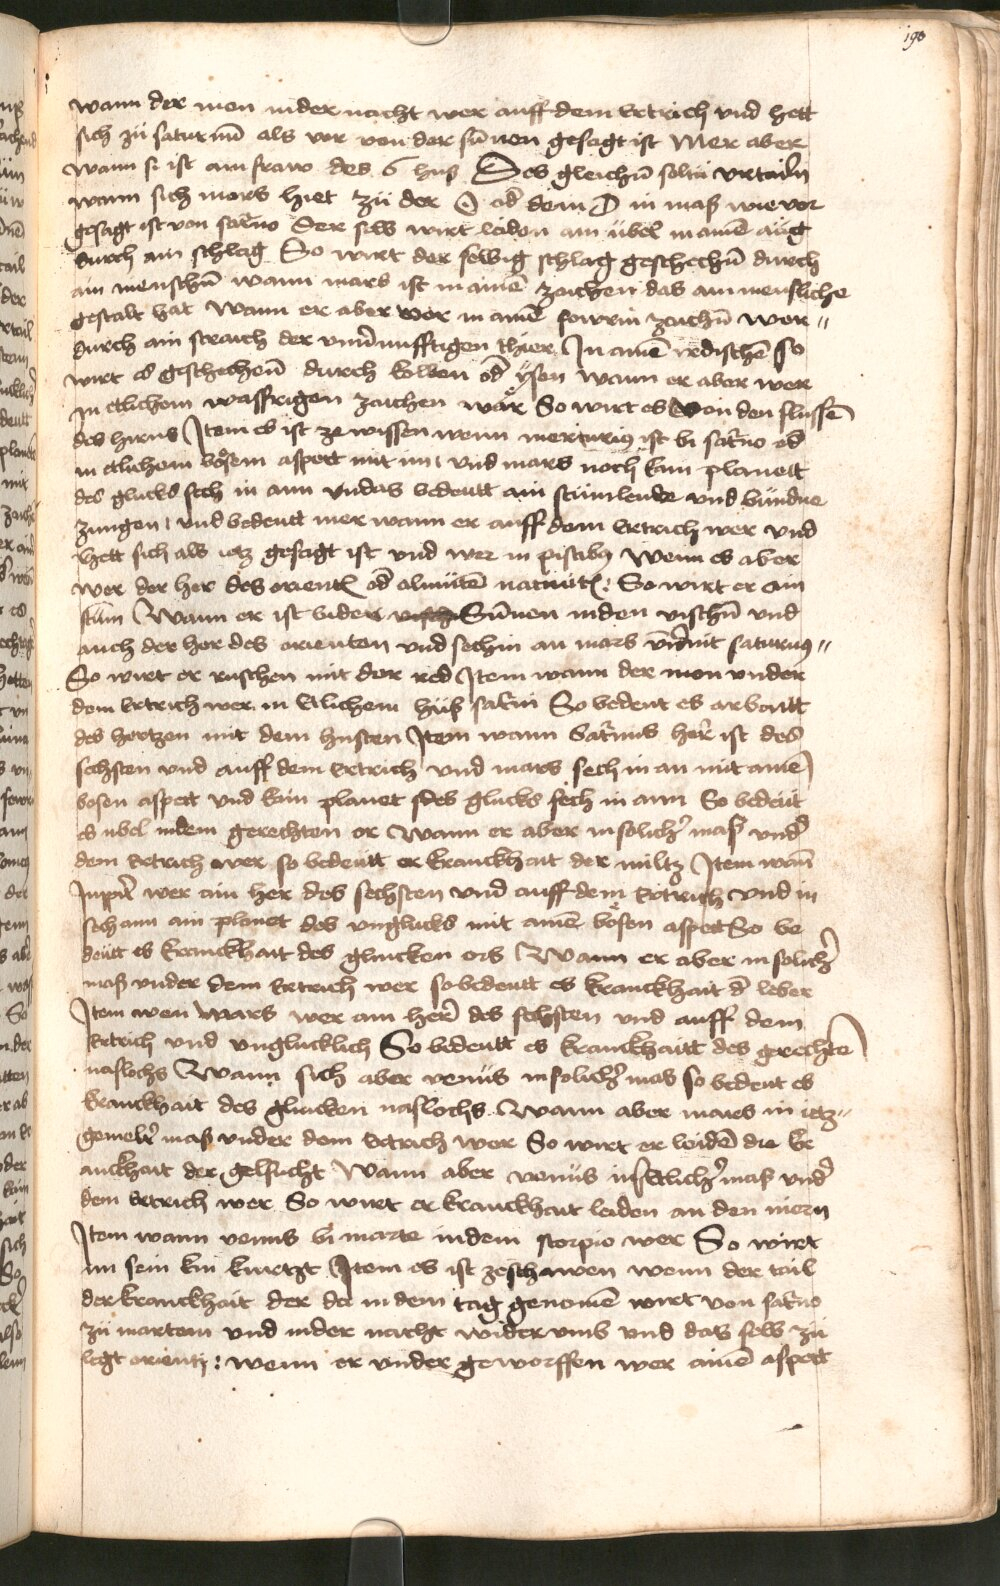 190
wann der mon in der nacht wer auff dem ertrich vnd hett
sich zü saturnū als vor von der sūnen gesagt ist Mer aber
wann si ist ain fraw des 6 huß Des gleichn̄ soltu vrtailn
wann sich mars hiet zü der ☉ od̄ dem ☽ in maß wie vor
gesagt ist von sat̄no Der selb wirt leiden ain übel in ainē aug
durch ain schleg So wirt der selbig schlag geschechn̄ durch
ain menschn̄ wann mars ist in ainē zaichen das ain mensliche
gestalt hat Wann er aber wer in ainē fewrin zaichn̄ wer〃
durch ain straich der vnu̅nufftigen thier In ainē irdischē so
wirt es geschechen̄ durch kolben od̄ ysen Wann er aber wer
in etlichem wassrigen zaichen wär So wirt es von den flussē
des hirns Item es ist ze wissen wenn merkurius ist bi sat̄no od̄
in etlichem bösem aspect mit im vnd mars noch kain planett
des glucks sech in ann vndas bedeutt ain stümlende vnd bündne
zungen vnd bedeutt mer wann er auff dem ertrich wer vnd
hett sich als ietz gesagt ist vnd wer in piscibus Wenn es aber
wer der her des orient od̄ almütē natiuit So wirt er ain
stūm Wann er ist bi der Sūnnen in den vischn̄ vnd
auch der her des orienten vnd sech in an mars vn̄ nit saturnus〃
So wirt er ruschen mit der red Item wann der mon vnder
dem ertrich wer in etlichem huß sat̄ni So bedeut es arbaitt
des hertzen mit dem husten Item wann Sat̄nus her ist des
sechsten vnd auff dem ertrich vnd mars sech in an mit ainē
bosen aspect vnd kain planet des glucks sech in ann So bedeüt
es ubel in dem gerechten or Wann er aber in solicher maß vnd̄
dem ertrich wer so bedeütt er kranckhait der miltz Item wān
Jupiter wer ain her des sechsten vnd auff dem ertrich vnd in
sech ann ain planet des vnglucks mit ainē bösen aspect So be
deütt es kranckhait des glincken ors Wann er aber in solicher
maß vnder dem ertrich wer so bedeutt es kranckhait d̄ leber
Item wen Mars wer ain her des sechsten vnd auff dem
ertrich vnd vnglucklich So bedeutt es kranckhaitt des gerechtē
naslochs Wann sich aber venus in solicher mas so bedeut es
kranckhait des glincken naslochs Wann aber mars in ietz〃
gemelt̄ maß vnder dem ertrach wer So wirt er leidē die kr
anckhait der gelsucht Wann aber venus in etlicher maß vnd̄
dem ertrich wer So wirt er kranckhait leiden an den niern
Item wann venus bi marte in dem scorpio wer So wirt
im sein kin kurtzt Item es ist ze schawen wenn der tail
der kranckhait der da in dem tag genomē wirt von sat̄no
zü martem vnd in der nacht widerumb vnd das selb zü
legt orienti: wenn er vnder geworffen wer ainē aspect